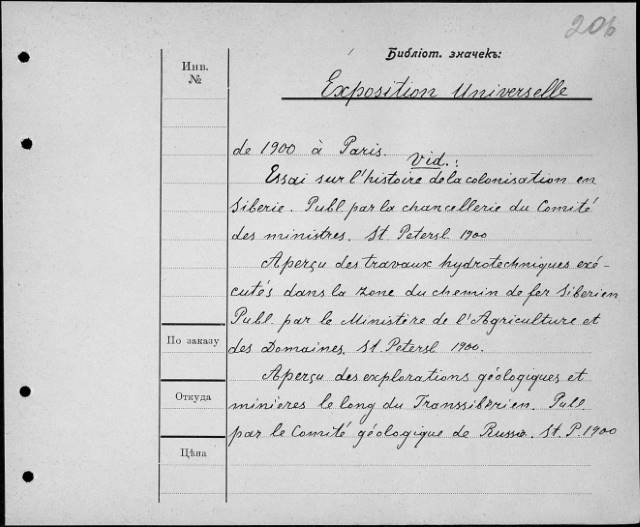 206
Библіот. значекъ:
Инв.
№
Exposition Universelle
de 1900 à Paris.
Vid.:
Essai sur l'histoire de la colonisation en
Siberie. Publ par la chancellerie du Comité
des ministres. St. Petersb. 1900
Aperçu des travaux hydrotechniques exé-
cutés dans la zone du chemin de fer Siberien
Publ. par le Ministère de l'Agriculture et
des Domaines. St. Petersb 1900.
Aperçu des explorations géologiques et
minieres le long du Transsibérien. Publ.
par le Comité géologique de Russie. St. P. 1900
По заказу
Откуда
Цѣна